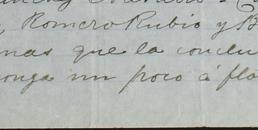 Romero Rubio y B
mas que la conclu
onga un poco á fla